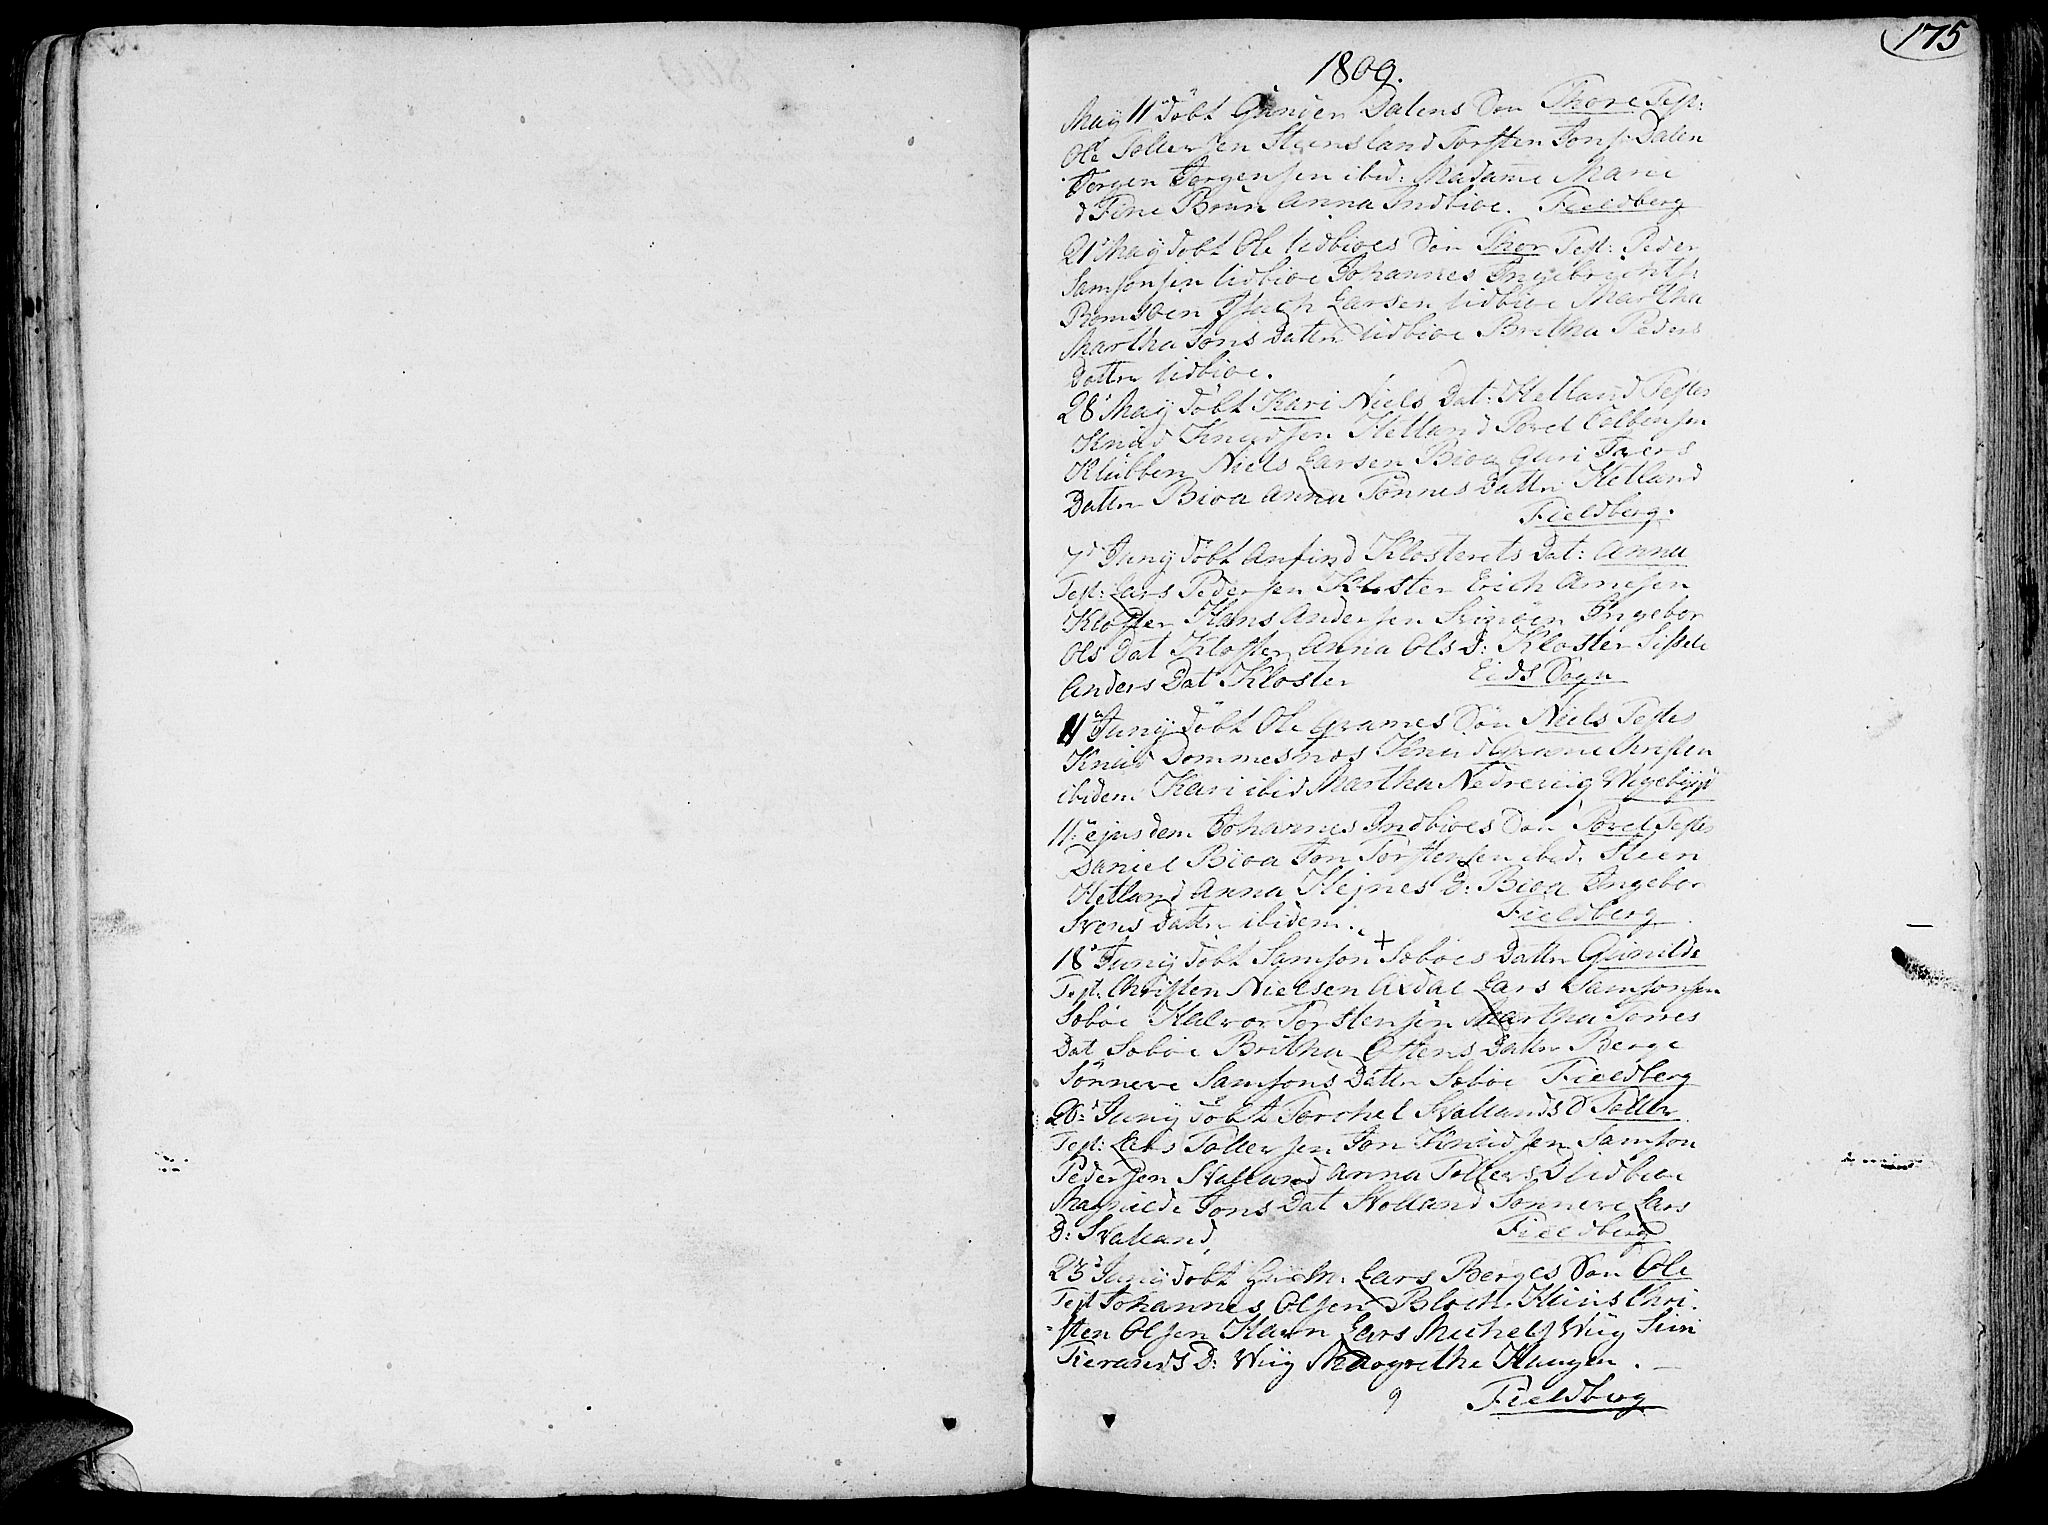 175
1809.
May 11 döbt Gunder Dalens Søn Thore Test:
Ole Tollersen Steensland Torsten Jons: Dalen
Jørgen Jørgensen ibid: Madame Marie
Brun Anna Indbioe. Fieldberg
21 May döbt Ole Udbioes Søn Thor Test: Peder
Samsonsen Udbioe Johannes Ingebrechts:
Larsen Udbioe Martha
Martha Jons Datter Udbioe Bretha Peders
Datter Udbioe.
28 May döbt Kari Niels Dat: Hetland Testes
Knud Knudsen Hetland Povel Colbensen
Klubben Niels Larsen Bioa Guri
Datter Bioa Anna Tönnes Datter Hetland
Fieldberg.
7d Juny döbt Anfind Klosterets Dat: Anna
Test: Lars Pedersen Kloster Erich Arnesen
Kloster Hans Andersen Ingebor
Ols Dat Kloster Anna Ols D: Kloster Sissele
Anders Dat Kloster Eids Sogn
11 Juny döbt Ole Grames Søn Niels Testes
Knud Dommesnes Knud Grame Christen
ibidem Kari ibid Martha
11 ejusdem Johannes Indbioes Søn Povel Testes
Daniel Bioa Jon Torstensen ibid. Steen
Hetland Anna Hejnes D: Bioa Ingebor
Svens Datter ibidem. Fieldberg
18 Juny döbt Samson + Soböes Datter Gunilde
Test: Christen Nielsen Axdal Lars Samsonsen
Soböe Halvor Torstensen Martha Torres
Dat Soböe Britha Ostens Datter Berge
Sönneve Samsons Datter Soböe Fieldberg
20: Juny döbt Torchel Svallands S Toller
Test: Lars Tollersen Jon Knudsen Samson
Pedersen Svalland Anna Tollers D Udbioe
Magnilde Jons Dat Svolland Sønneve Lars
D: Svalland, Fieldberg
23 Juny döbt Lars Berges Søn Ole
Test Johannes Olsen Bloch Chri-
-sten Olsen Havn Lars Michels Wiig Siri
D: Wiig Margrethe Haugen. —
9 Fieldberg